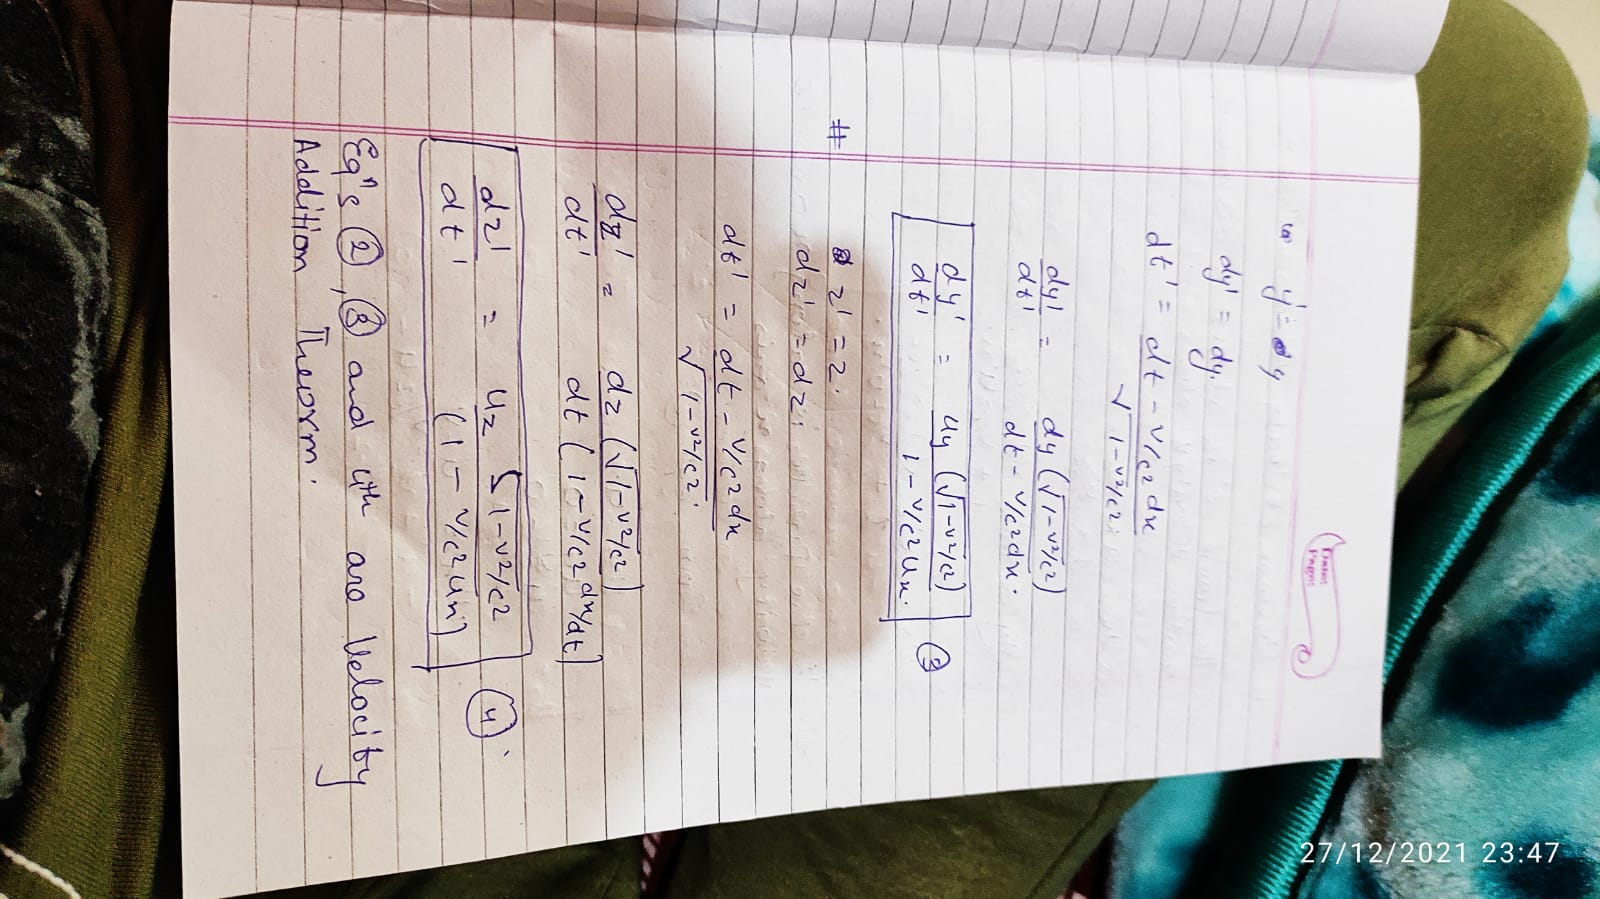 Date:
Page:
y' = y
dy' = dy.
dt' = dt - v/c² dx
√1-v²/c².
dy'/dt' = dy (√1-v²/c²)
dt - v/c² dx.
dy'/dt' = uy (√1-v²/c²)
1 - v/c² ux. (3)
# z' = z.
dz' = dz;
dt' = dt - v/c² dx
√1-v²/c².
dz'/dt' = dz (√1-v²/c²)
dt (1 - v/c² dx/dt)
dz'/dt' = uz √1-v²/c²
(1 - v/c² ux) (4).
Eqⁿs (2), (3) and 4th are Velocity
Addition Theorm.
27/12/2021 23:47